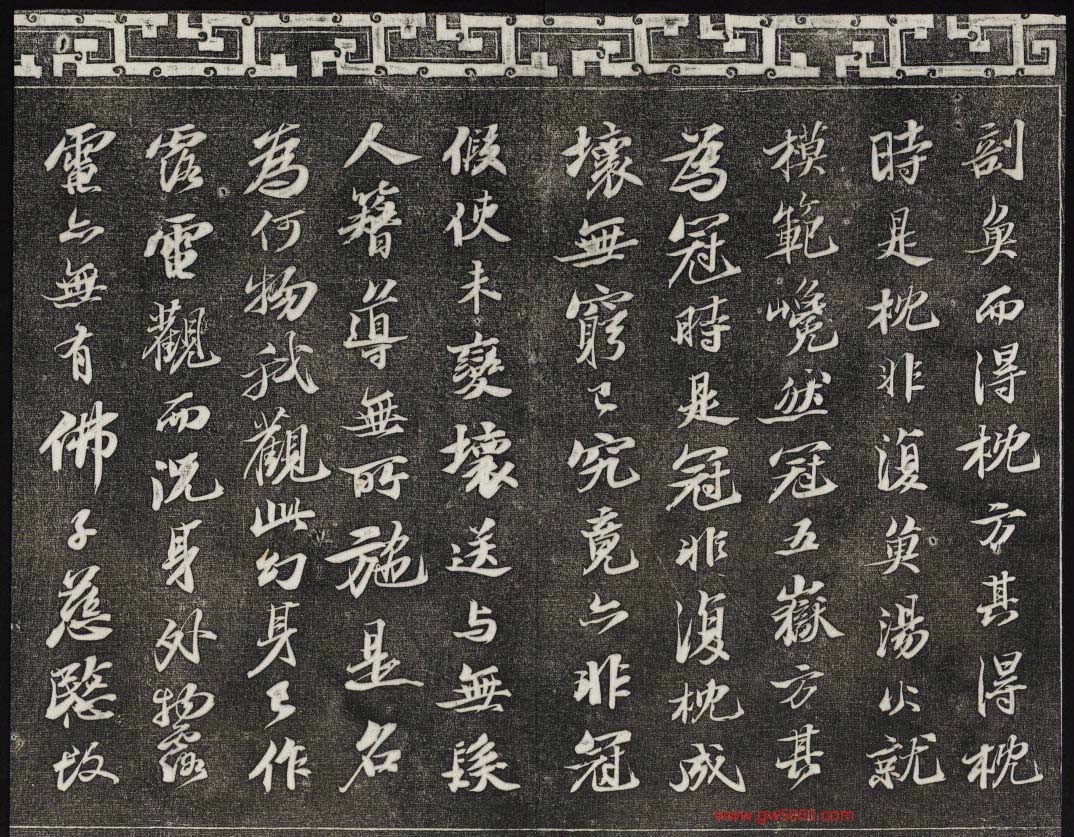 剖魚而得枕方其得枕
時是枕非復魚湯火就
模範巉然冠五嶽方其
為冠時是冠非復枕成
壞無窮已究竟亦非冠
假使未變壞送與無髮
人簪導無所施是名
為何物我觀此幻身已作
露電觀而況身外物露
電亦無有佛子慈愍故
www.gw5000.com